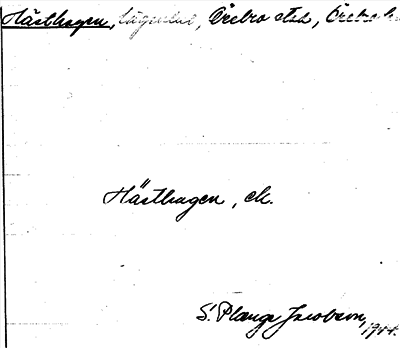 Hästhagen, lägenhet, Örebro stad, Örebro l.
Hästhagen, ek.
S. Plange Jacobson, 1944.